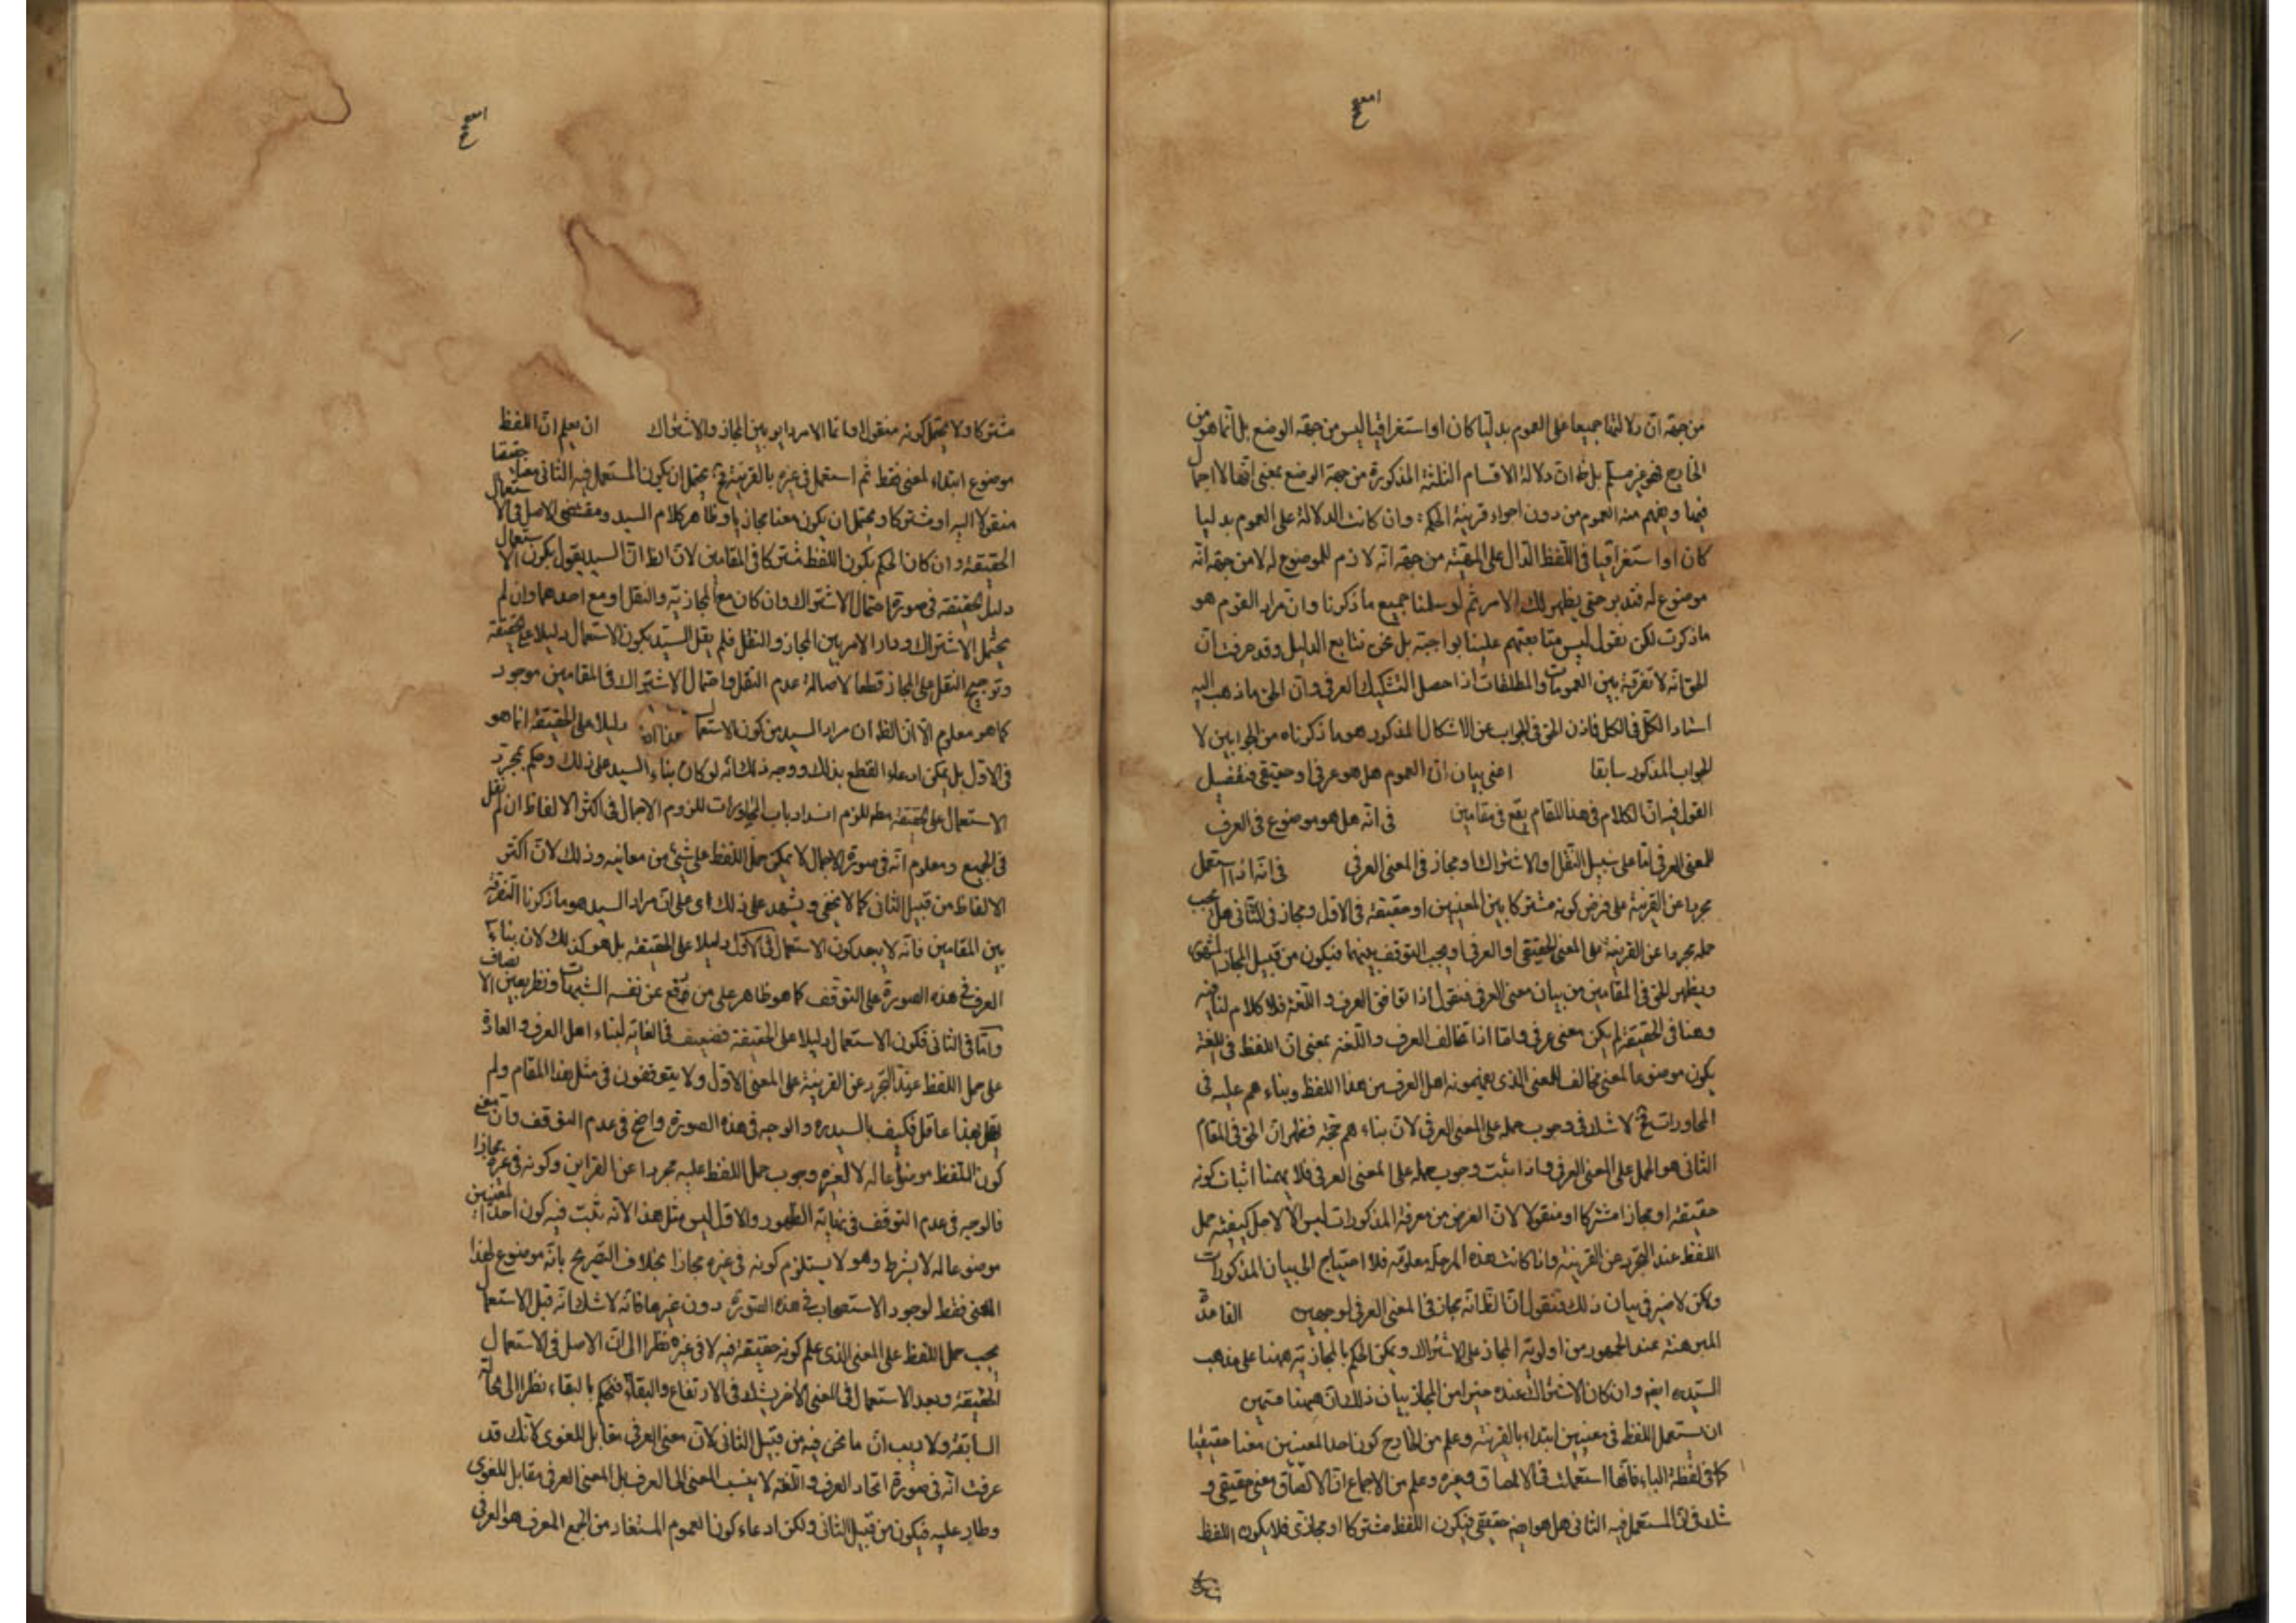 من جهة ان دلالتها جميعا على العموم بدليا كان او استغراقيا ليس من جهة الوضع بل انما هو من
الخارج فهو غير مسلم بل ان دلالة الاقسام الثلثة المذكورة من جهة الوضع بمعنى انها لا اجمال
فيها ويفهم منه العموم من دون اجراء قرينة الحكمة وان كانت الدلالة على العموم بدليا
كان او استغراقيا فى اللفظ الدال على المهية من جهة انه لازم للموضوع له لا من جهة انه
موضوع له فتدبر حتى يظهر لك الامر ثم لو سلمنا جميع ما ذكرنا وان مراد القوم هو
ما ذكرت لكن نقول ليس متابعتهم علينا بواجبة بل نحن نتابع الدليل وقد عرفت ان
الحق انه لا تفرقة بين العمومات والمطلقات اذا حصل التشكيك العرفى وان الحق ما ذهب اليه
استاد الكل فى الكل فاذن الحق فى الجواب عن الاشكال المذكور هو ما ذكرناه من الجوابين لا
الجواب المذكور سابقا اعنى بيان ان العموم هل هو عرفى او حقيقى فتفصيل
القول فيه ان الكلام فى هذا المقام يقع فى مقامين فى انه هل هو موضوع فى العرف
للمعنى العرفى اما على سبيل النقل او الاشتراك او مجاز فى المعنى العرفى فى انه اذا استعمل
مجردا عن القرينة على فرض كونه مشتركا بين المعنيين او حقيقة فى الاول ومجاز فى الثانى هل يجب
حمله مجردا عن القرينة على المعنى الحقيقى او العرفى او يجب التوقف بينهما فيكون من قبيل المجاز المشهور
ويظهر الحق فى المقامين من بيان معنى العرفى فنقول اذا توافق العرف واللغة فلا كلام لنا فيه
وهنا فى الحقيقة لم يكن معنى عرفى واما اذا تخالف العرف واللغة بمعنى ان اللفظ فى اللغة
يكون موضوعا لمعنى مخالف للمعنى الذى يفهمونه اهل العرف من هذا اللفظ وبناءهم عليه فى
المحاورات فح لا شك فى وجوب حمله على المعنى العرفى لان بناءهم حجة فظهر ان الحق فى المقام
الثانى هو الحمل على المعنى العرفى واذا ثبت وجوب حمله على المعنى العرفى فلا يهمنا اثبات كونه
حقيقة او مجازا مشتركا او منقولا لان الغرض من معرفة المذكورات ليس الا لاجل كيفية حمل
اللفظ عند التجرد عن القرينة واذا كانت هذه المرحلة معلومة فلا احتياج الى بيان المذكورات
ولكن لا ضير فى بيان ذلك فنقول ان الظ انه مجاز فى المعنى العرفى لوجهين القاعدة
المبرهنة عند الجمهور من اولوية المجاز على الاشتراك ويمكن الحكم بالمجازية ههنا على مذهب
السيد ايض وان كان الاشتراك عنده خيرا من المجاز بيان ذلك ان ههنا قسمين
ان يستعمل اللفظ فى معنيين ابتداء بالقرينة وعلم من الخارج كون احد المعنيين معنا حقيقيا
كما فى لفظة الباء فانها استعملت فى الالصاق وغيره وعلم من الاجماع ان الالصاق معنى حقيقى و
شك فى ان المستعمل فيه الثانى هل هو ايض حقيقى فيكون اللفظ مشتركا او مجازى فلا يكون اللفظ
مشتركا ولا يحتمل كونه منقولا وانما الامر دائر بين المجاز والاشتراك ان يعلم ان اللفظ
موضوع ابتداء لمعنى فقط ثم استعمل فى غيره بالقرينة فح يحتمل ان يكون المستعمل فيه الثانى معنا حقيقيا
منقولا اليه او مشتركا ويحتمل ان يكون معنا مجازيا وظاهر كلام السيد ومقتضى الاصل فى الاستعمال
الحقيقة وان كان الحكم بكون اللفظ مشتركا فى المقامين لان الظ ان السيد يقول بكون الاستعمال
دليل الحقيقة فى صورة احتمال الاشتراك وان كان مع المجازية والنقل او مع احدهما وان لم
يحتمل الاشتراك ودار الامر بين المجاز والنقل فلم يقل السيد بكون الاستعمال دليلا على الحقيقة
وترجيح النقل على المجاز قطعا لاصالة عدم النقل واحتمال الاشتراك فى المقامين موجود
كما هو معلوم الا ان الظ ان مراد السيد من كون الاستعمال دليلا على الحقيقة انما هو
فى الاول بل يمكن ادعاء القطع بذلك ووجه ذلك انه لو كان بناء السيد على ذلك وحكم بمجرد
الاستعمال على الحقيقة مط للزم انسداد باب المحاورات للزوم الاجمال فى اكثر الالفاظ ان لم نقل
فى الجميع ومعلوم انه فى صورة الاجمال لا يمكن حمل اللفظ على شئ من معانيه وذلك لان اكثر
الالفاظ من قبيل الثانى كما لا يخفى ويشهد على ذلك اى على ان مراد السيد هو ما ذكرنا التفرقة
بين المقامين فانه لا يبعد كون الاستعمال فى الاول دليلا على الحقيقة بل هو كذلك لان بناء
العرف فى هذه الصورة على التوقف كما هو ظاهر على من رفع عن نفسه الشبهات ونظر بعين الانصاف
واما فى الثانى فكون الاستعمال دليلا على الحقيقة فضعيف فى الغاية لبناء اهل العرف والعادة
على حمل اللفظ عند التجرد عن القرينة على المعنى الاول ولا يتوقفون فى مثل هذا المقام ولم
يقل بهذا عاقل فكيف بالسيد ره والوجه فى هذه الصورة واضح فى عدم التوقف وان معنى
كون اللفظ موضوعا له لا لغيره وجوب حمل اللفظ عليه مجردا عن القراين وكونه فى غيره مجازا
فالوجه فى عدم التوقف فى نهاية الظهور والاول ليس مثل هذا لانه يثبت فيه كون احد المعنيين
موضوعا له لا بشرط وهو لا يستلزم كونه فى غيره مجازا بخلاف التصريح بانه موضوع لهذا
المعنى فقط لوجود الاستصحاب فى هذه الصورة دون غيرها فانه لا شك انه قبل الاستعمال
يجب حمل اللفظ على المعنى الذى علم كونه حقيقة فيه لا فى غيره نظرا الى ان الاصل فى الاستعمال
الحقيقة وبعد الاستعمال فى المعنى الاخر يشك فى الارتفاع والبقاء فنحكم بالبقاء نظرا الى الحالة
السابقة ولا ريب ان ما نحن فيه من قبيل الثانى لان معنى العرفى مقابل للغوى لانك قد
عرفت انه فى صورة اتحاد العرف واللغة لا ينسب المعنى الى العرف بل المعنى العرفى مقابل للغوى
وطار عليه فيكون من قبيل الثانى ولكن ادعاء كون العموم المستفاد من الجمع المعرف هو العرفى